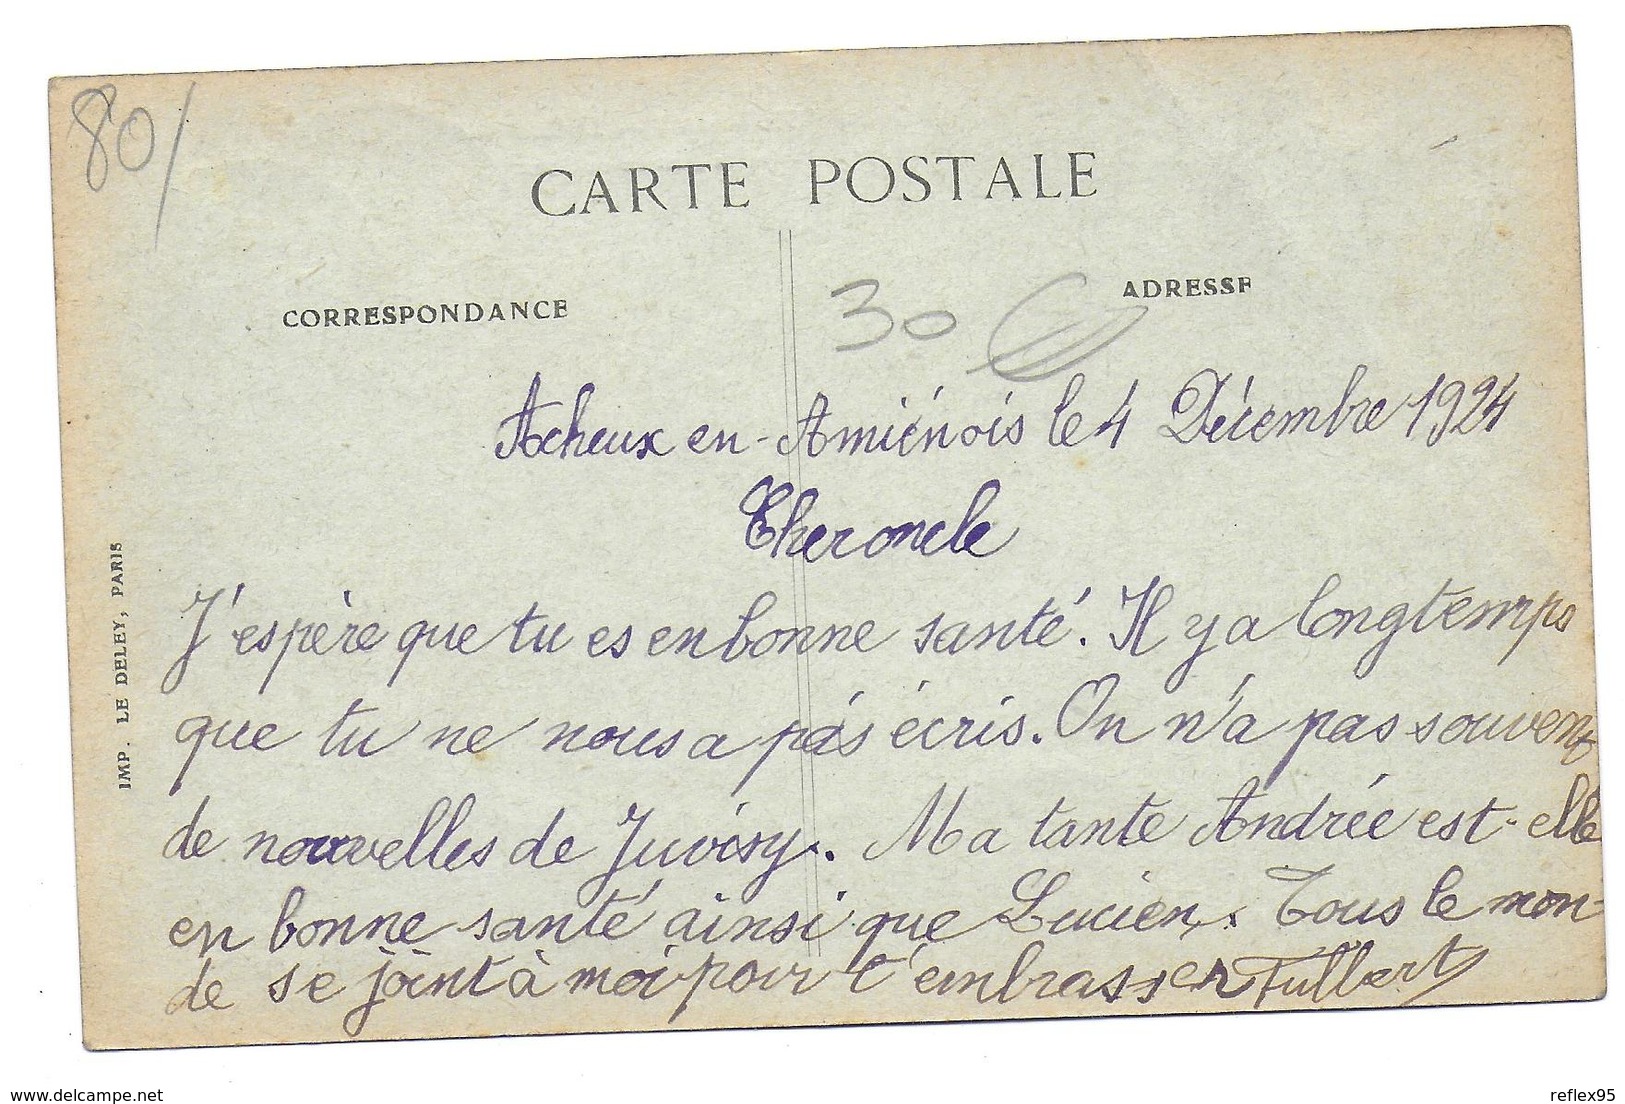 80/
CARTE POSTALE
CORRESPONDANCE
ADRESSE
30
Acheux en-Amiénois le 4 Décembre 1924
Cher oncle
J'espère que tu es en bonne santé. Il y a longtemps
que tu ne nous a pas écris. On n'a pas souvent
de nouvelles de Juvisy. Ma tante Andrée est-elle
en bonne santé ainsi que Lucien. Tous le mon-
de se joint à moi pour t'embrasser Fulbert
IMP. LE DELEY, PARIS
delcampe.net
reflex95